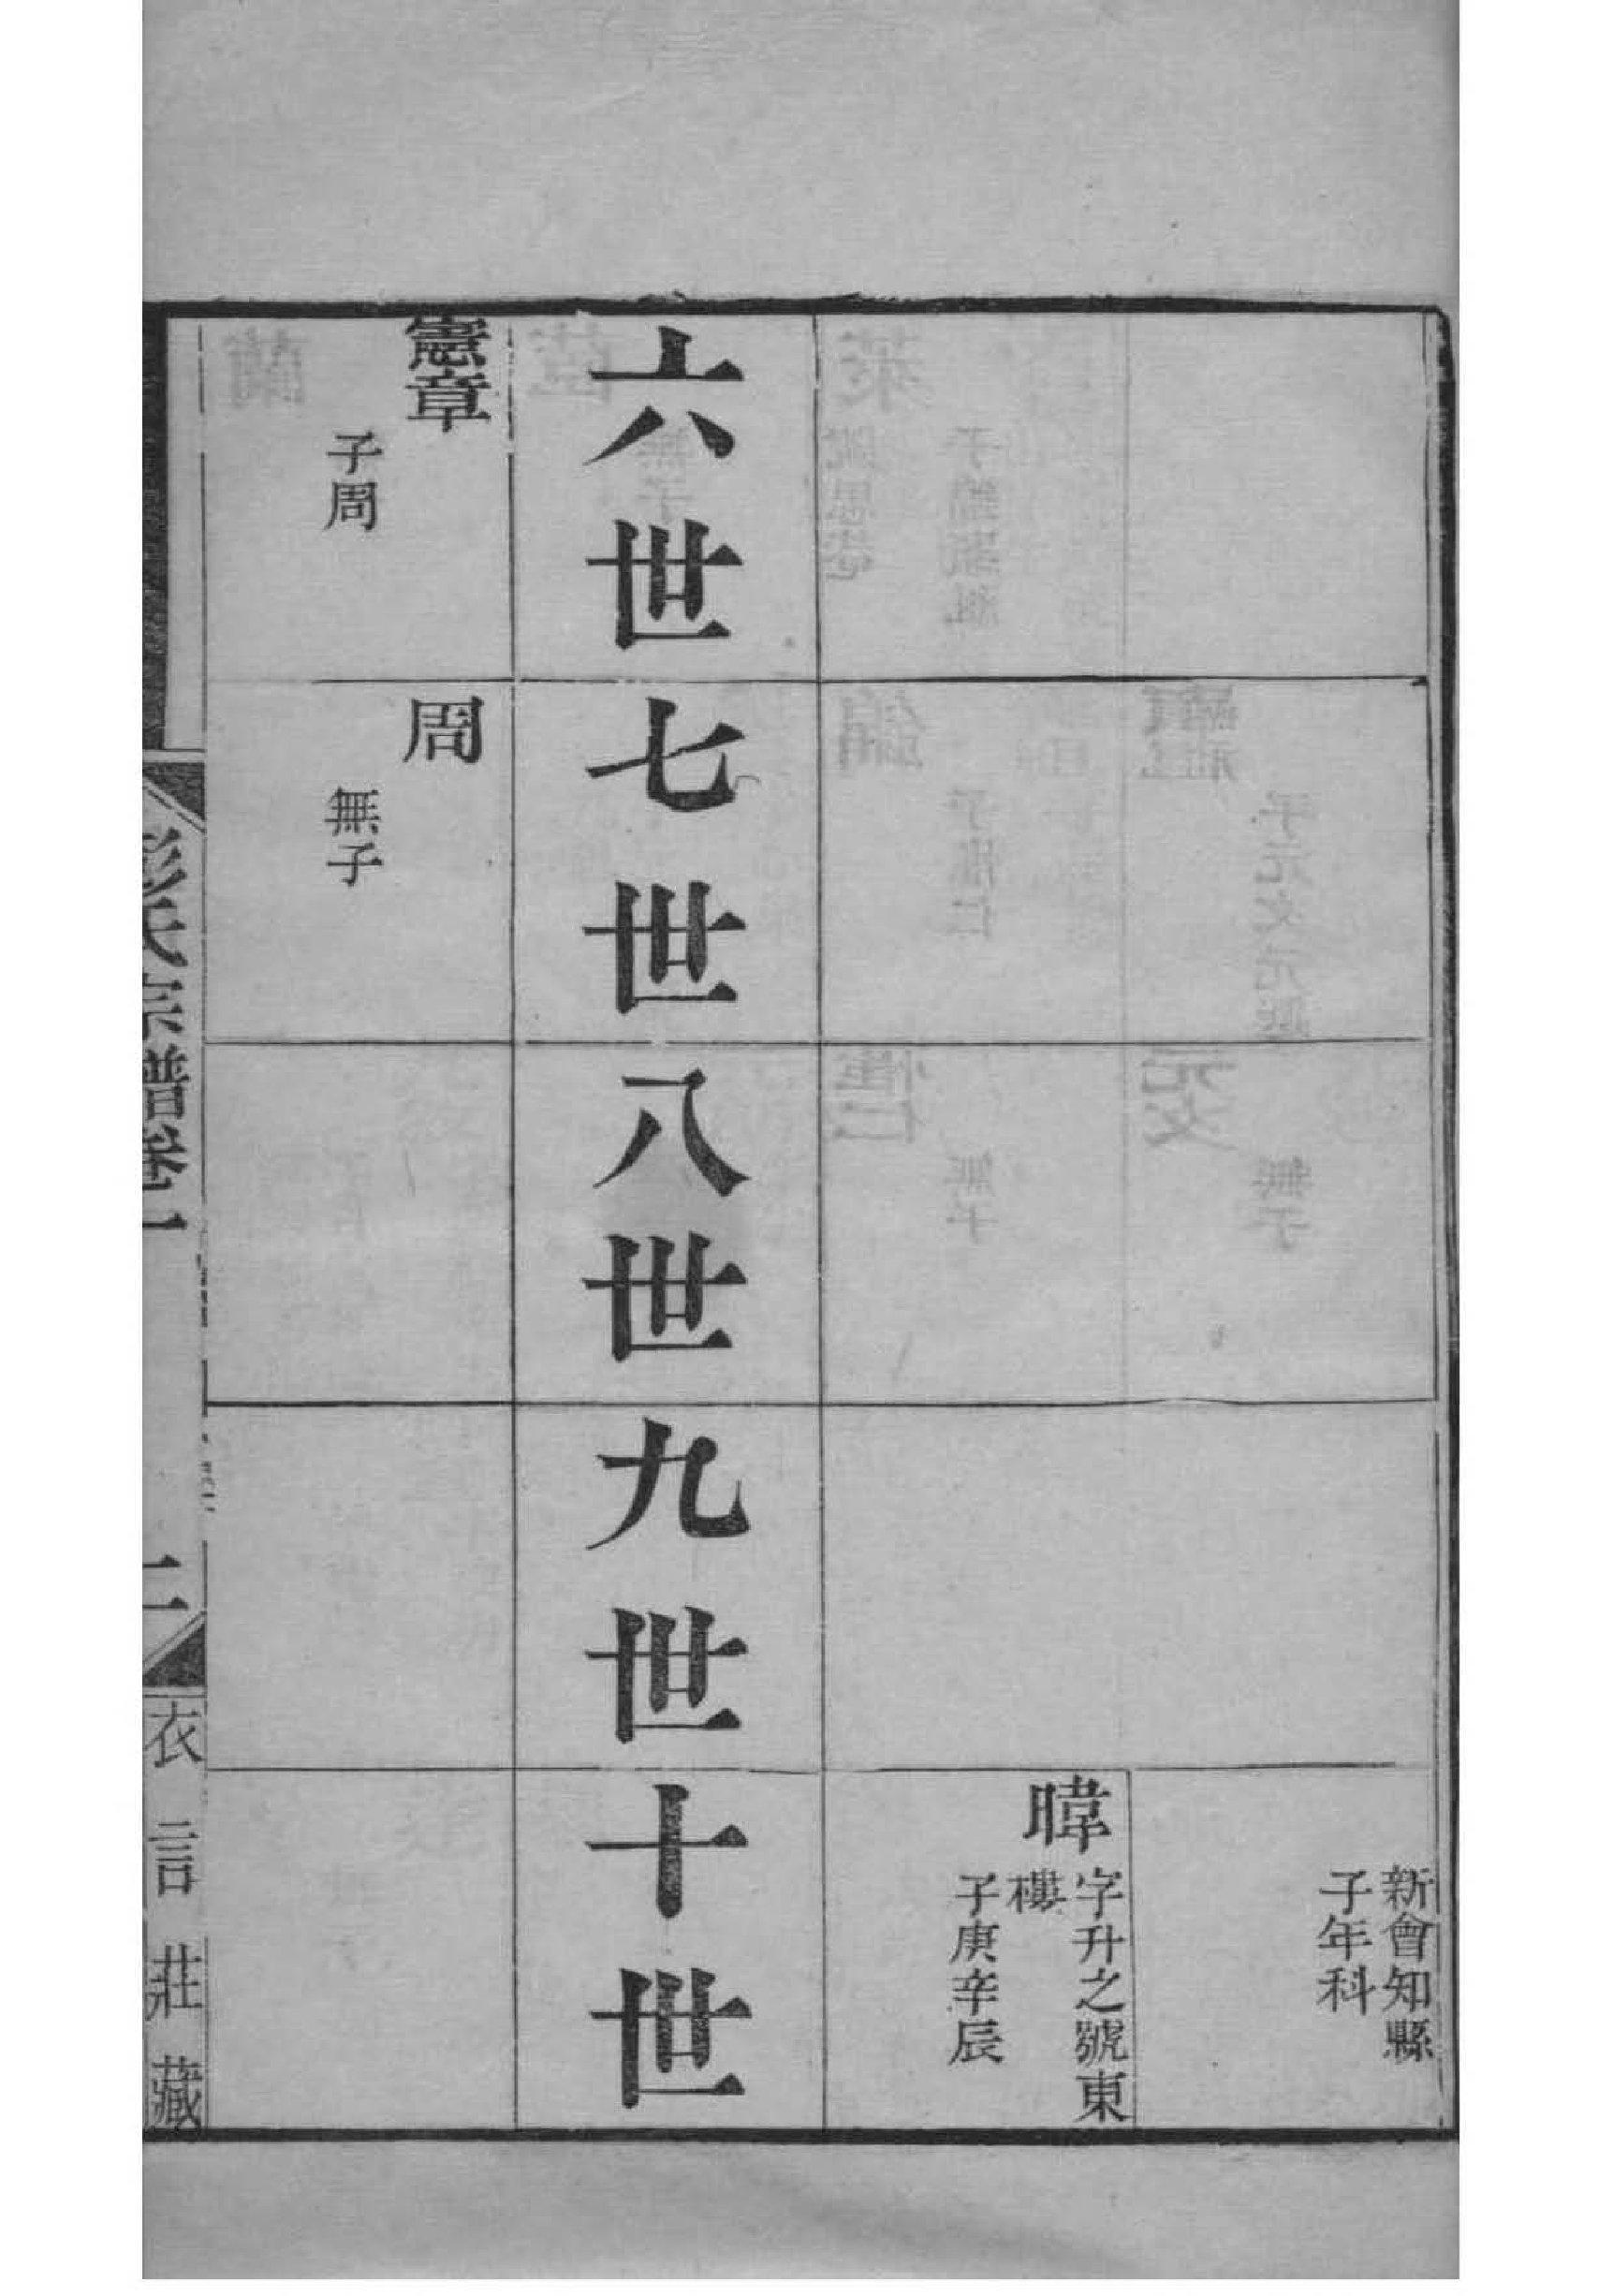 新會知縣
子年科
暐
字升之號東
樓
子庚辛辰
六世
七世
八世
九世
十世
憲章
子周
周
無子
彭氏宗譜卷一
二
衣言莊藏